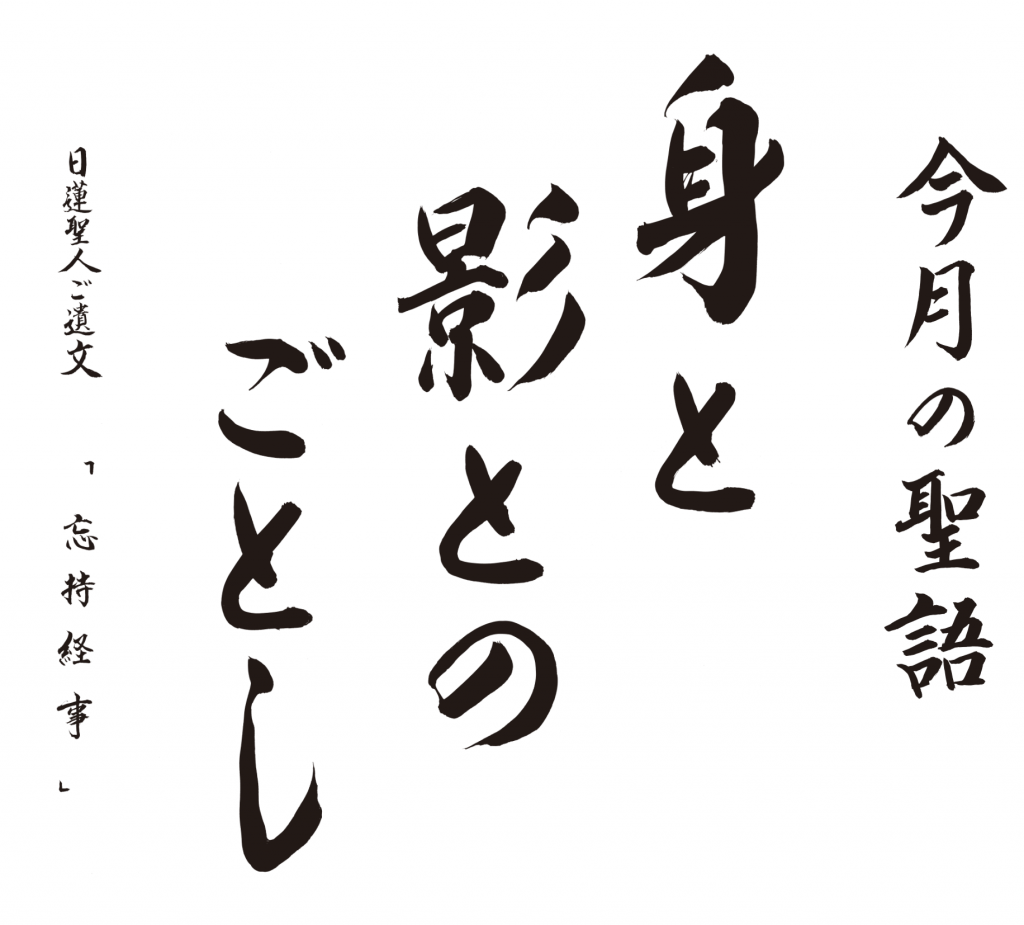 今月の聖語
身と
影との
ごとし
日蓮聖人ご遺文 「忘持経事」